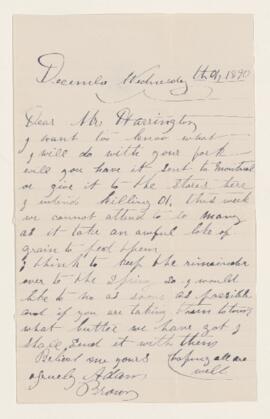 December Wednesday 1890
Dear Mr Harrington
I want too know what
I will do with your pork
will you have it sent to Montreal
or give it to the stores here
I intend killing 01, this week
we cannot attend to so many
as it take an awful lots of
grain to feed them
I think to keep the remainder
over to the Spring so I would
like to no as soon as possible
and if you are taking them to town
what buttie we have got I
shall send it with them
Believe me yours hoping all are
well
Adam
Brown